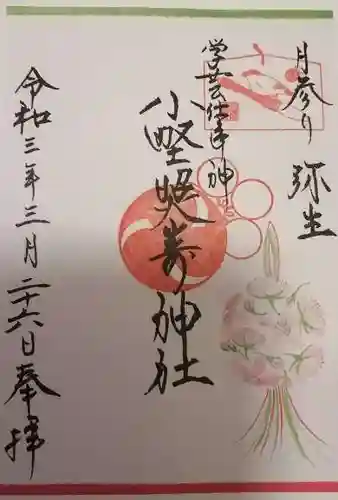 月参り 弥生
学芸仕事神
小埜照嵜神社
令和三年三月二十六日奉拝